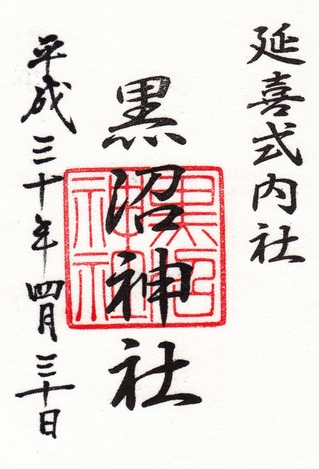 延喜式内社
黒沼神社
黒沼神社
平成三十年四月三十日